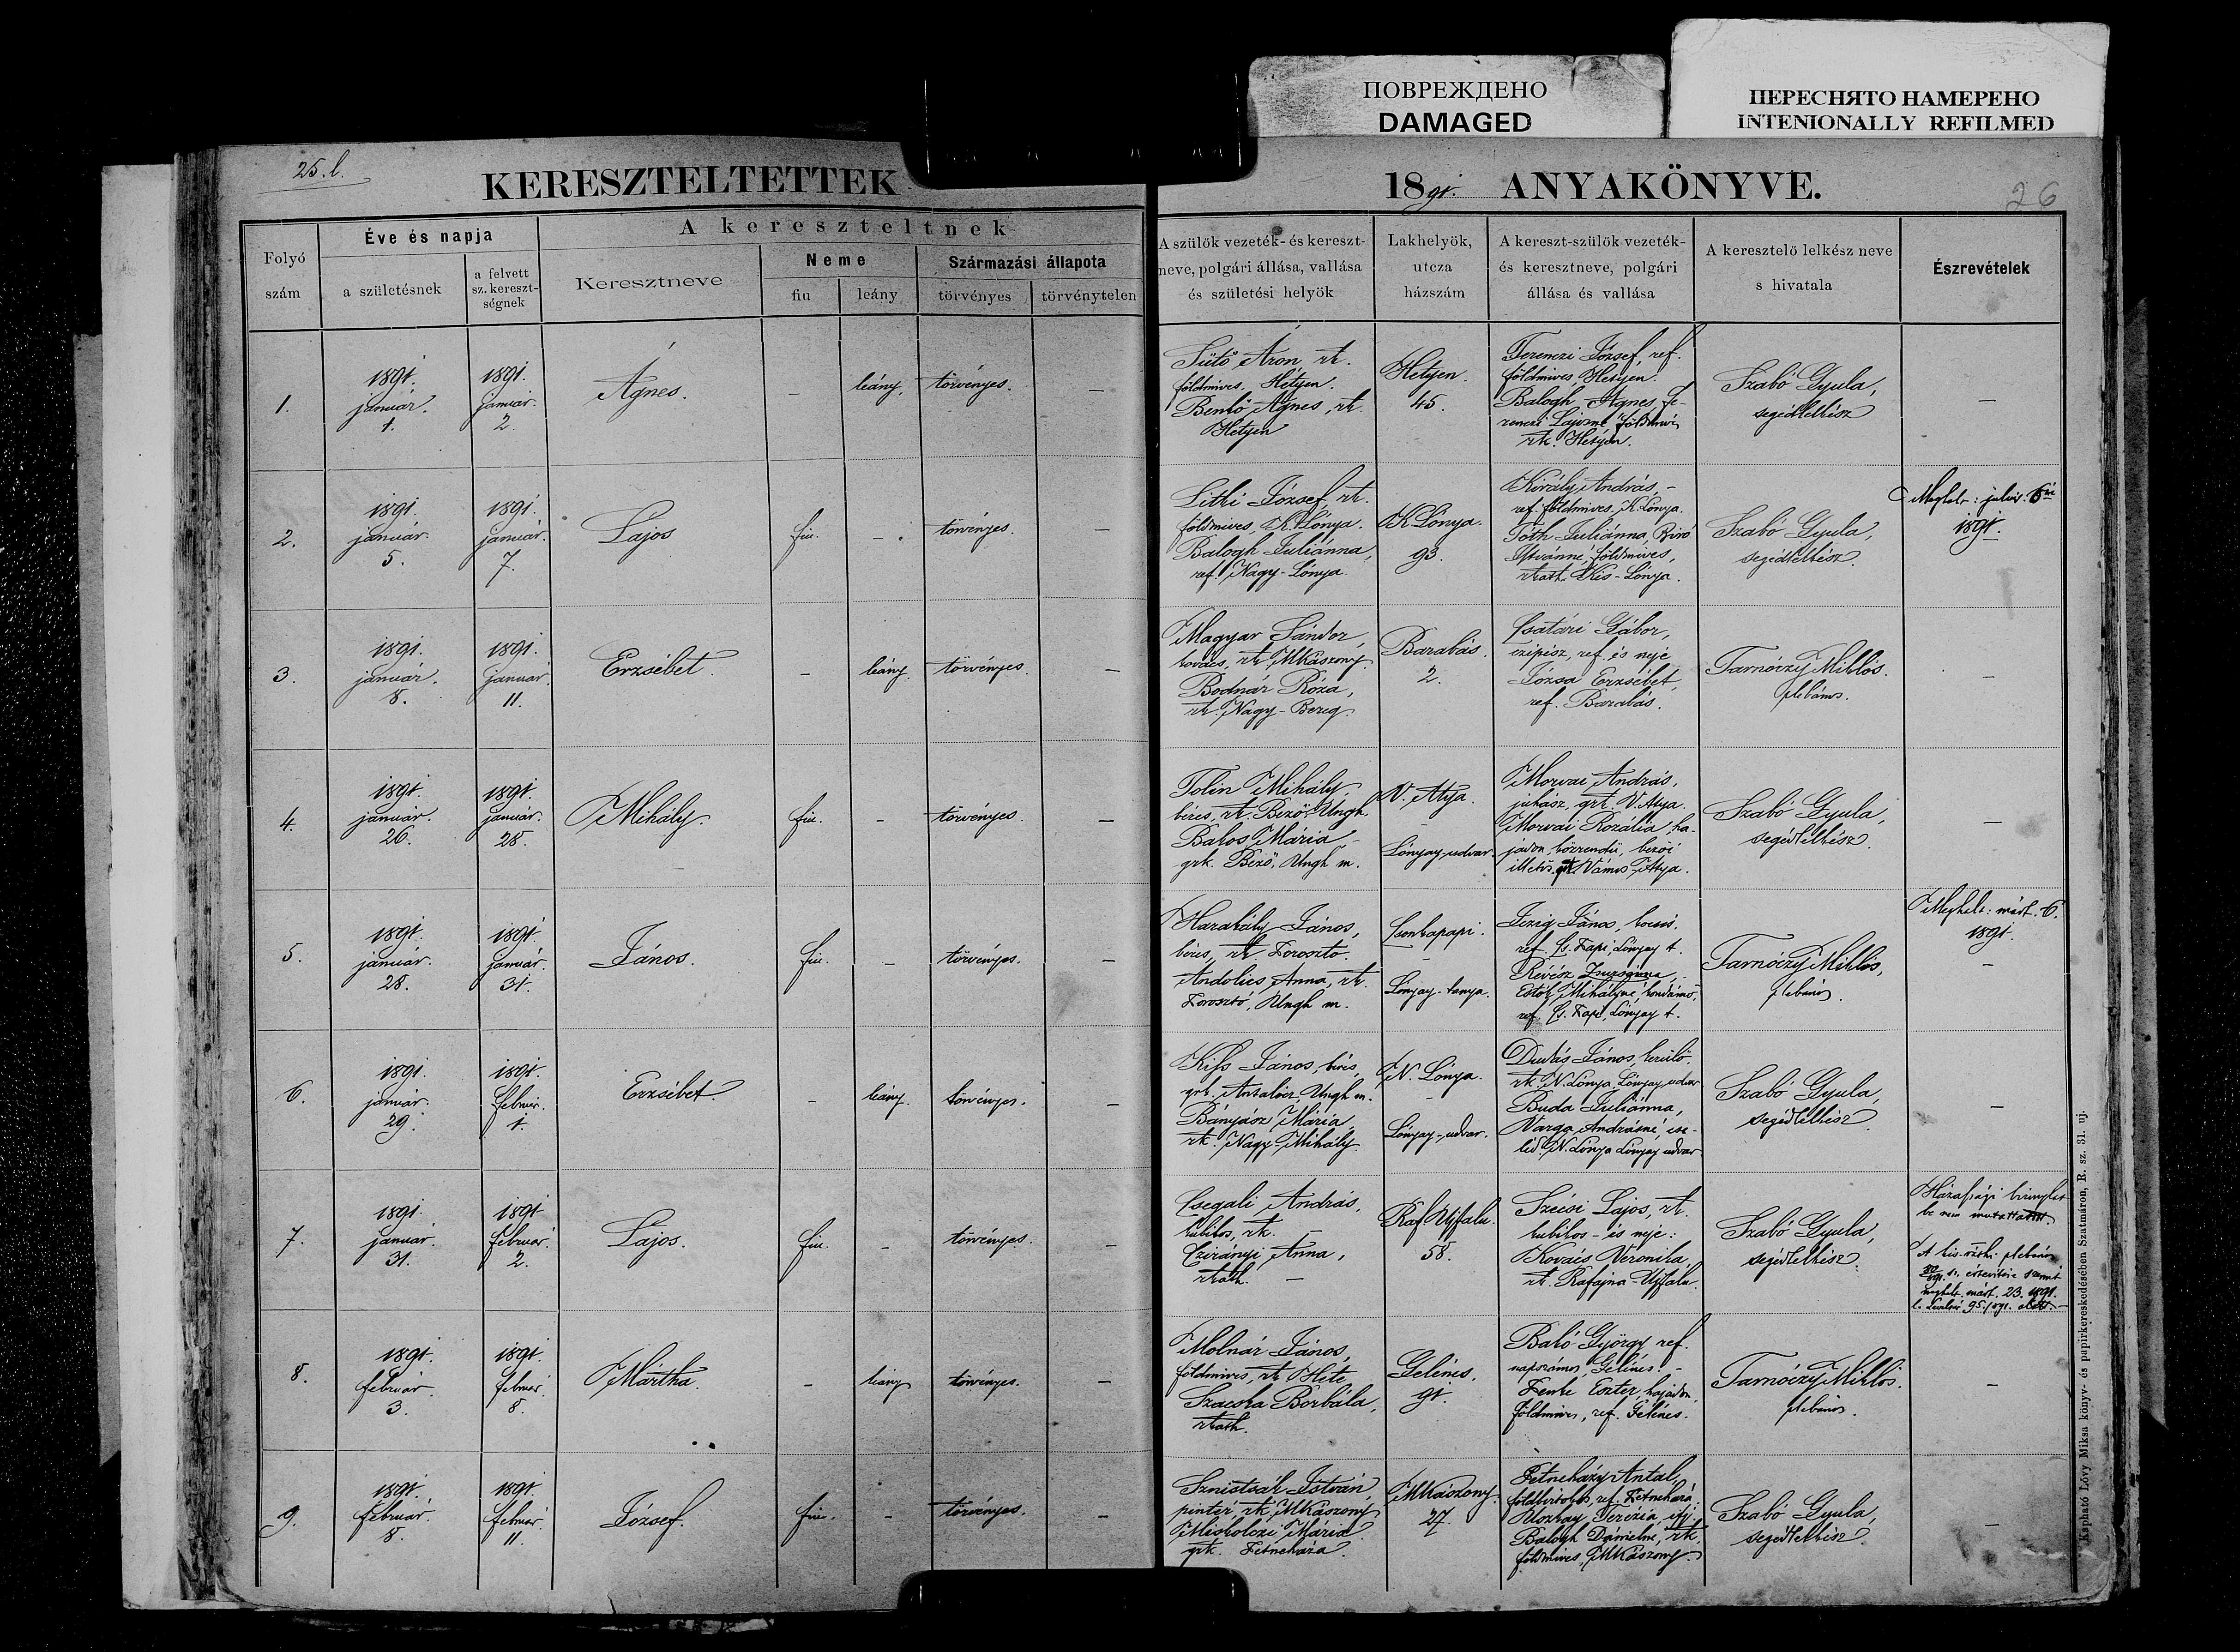 ПОВРЕЖДЕНО
DAMAGED
ПЕРЕСНЯТО НАМЕРЕНО
INTENIONALLY REFILMED
25. l.
KERESZTELTETTEK
1891. ANYAKÖNYVE.
26
Folyó
szám
Éve és napja
a születésnek
a felvett
sz. kereszt-
ségnek
A kereszteltnek
Keresztneve
Neme
fiu
leány
Származási állapota
törvényes
törvénytelen
A szülök vezeték- és kereszt-
neve, polgári állása, vallása
és születési helyök
Lakhelyök,
utcza
házszám
A kereszt-szülök vezeték-
és keresztneve, polgári
állása és vallása
A keresztelö lelkész neve
s hivatala
Észrevételek
1.
1891.
január.
1.
1891.
január.
2.
Ágnes.
–
leány.
törvényes.
–
Sütő Áron rk.
földmives, Hetyen.
Benkő Ágnes, rk.
Hetyen
Hetyen.
45.
Ferenczi József, ref.
földmives, Hetyen.
Balogh Ágnes, Fe-
renczi Lajosné földmives
rk. Hetyen.
Szabó Gyula,
segédlelkész
–
2.
1891.
január.
5.
1891.
január.
7.
Lajos
fiu.
–
törvényes.
–
Litki József, rk.
földmives, K. Lónya.
Balogh Juliánna,
ref. Nagy-Lónya.
K. Lónya.
93.
Király András, –
ref. földmives. K. Lónya.
Tóth Juliánna Biró
Istvánné, földmives,
rkath. Kis-Lónya.
Szabó Gyula,
segédlelkész.
Meghalt: julius 6án
1891.
3.
1891.
január.
8.
1891.
január.
11.
Erzsébet.
–
leány.
törvényes.
–
Magyar Sándor,
kovács, rk. MKászony.
Bodnár Róza,
rk. Nagy-Bereg.
Barabás.
2.
Csatári Gábor,
czipész, ref. és neje
Józsa Erzsébet,
ref. Barabás.
Tarnóczy Miklós.
plebános.
–
4.
1891.
január.
26.
1891.
január.
28.
Mihály.
fiu.
–
törvényes.
–
Tolin Mihály,
béres, rk. Bező, Ungh.
Balos Mária, –
grk. Bező, Ungh m.
V. Atya.
–
Lónyay-udvar.
Morvai András,
juhász, grk. V. Atya.
Morvai Rozália, ha-
jadon, közrendü, bezői
illetős. Vámos Atya.
Szabó Gyula,
segédlelkész.
–
5.
1891.
január.
28.
1891.
január.
31.
János.
fiu.
–
törvényes.
–
Harabály János,
béres, rk
Andolics Anna, rk.
Ungh m.
Csonkapapi.
–
Lónyay-tanya.
János, kocsis.
ref. Cs. Papi, Lónyay t.
Révész Zsuzsánna,
Mihályné,
ref. Cs. Papi, Lónyay t.
Tarnóczy Miklós,
plebános.
Meghalt: márt. 6.
1891.
–
6.
1891.
január.
29.
1891.
február.
1.
Erzsébet.
–
leány.
törvényes.
–
Kiss János, béres,
grk. Antalócz, Ungh m.
Bányász Mária,
rk. Nagy-Mihály.
N. Lónya.
–
Lónyay-udvar.
Dudás János, kerülő.
rk. N. Lónya, Lónyay udvar
Buda Juliánna,
Varga Andrásné, cse-
léd. N. Lónya Lónyay udvar
Szabó Gyula,
segédlelkész.
–
7.
1891.
január.
31.
1891
február.
2.
Lajos.
fiu.
–
törvényes.
–
Csegali András,
kubikos, rk. –
Czirányi Anna,
rkath. –
Raf. Ujfalu.
58.
Szécsi Lajos, rk.
kubikos – és neje:
Kovács Veronika,
rk. Rafajna-Ujfalu.
Szabó Gyula,
segédlelkész.
Házassági bizonylat
be nem mutattatott.
A plebános
értesitése szerint
meghalt márt. 23. 1891.
95./891. alatt. –
8.
1891.
február.
3.
1891.
február.
8.
Mártha.
–
leány
törvényes.
–
Molnár János,
földmives, rk. Hete
Szacska Borbála,
rkath.
Gelénes.
91.
Bakó György, ref.
napszámos, Gelénes. –
Eszter, hajadon
földmives, ref. Gelénes.
Tarnóczy Miklós.
plebános.
–
9.
1891.
február.
8.
1891.
február.
11.
József.
fiu.
–
törvényes.
–
Szniatsák István,
pintér, rk. MKászony
Miskolczi Mária
grk. Petneháza.
MKászony.
27.
Petneházy Antal,
földbirtokos, ref. Petneháza.
Terézia, ifj.
Balogh Dánielné, rk.
földmives, MKászony.
Szabó Gyula,
segédlelkész.
–
Kapható Lövy Miksa könyv- és papirkereskedésében Szatmáron, R. sz. 31. uj.